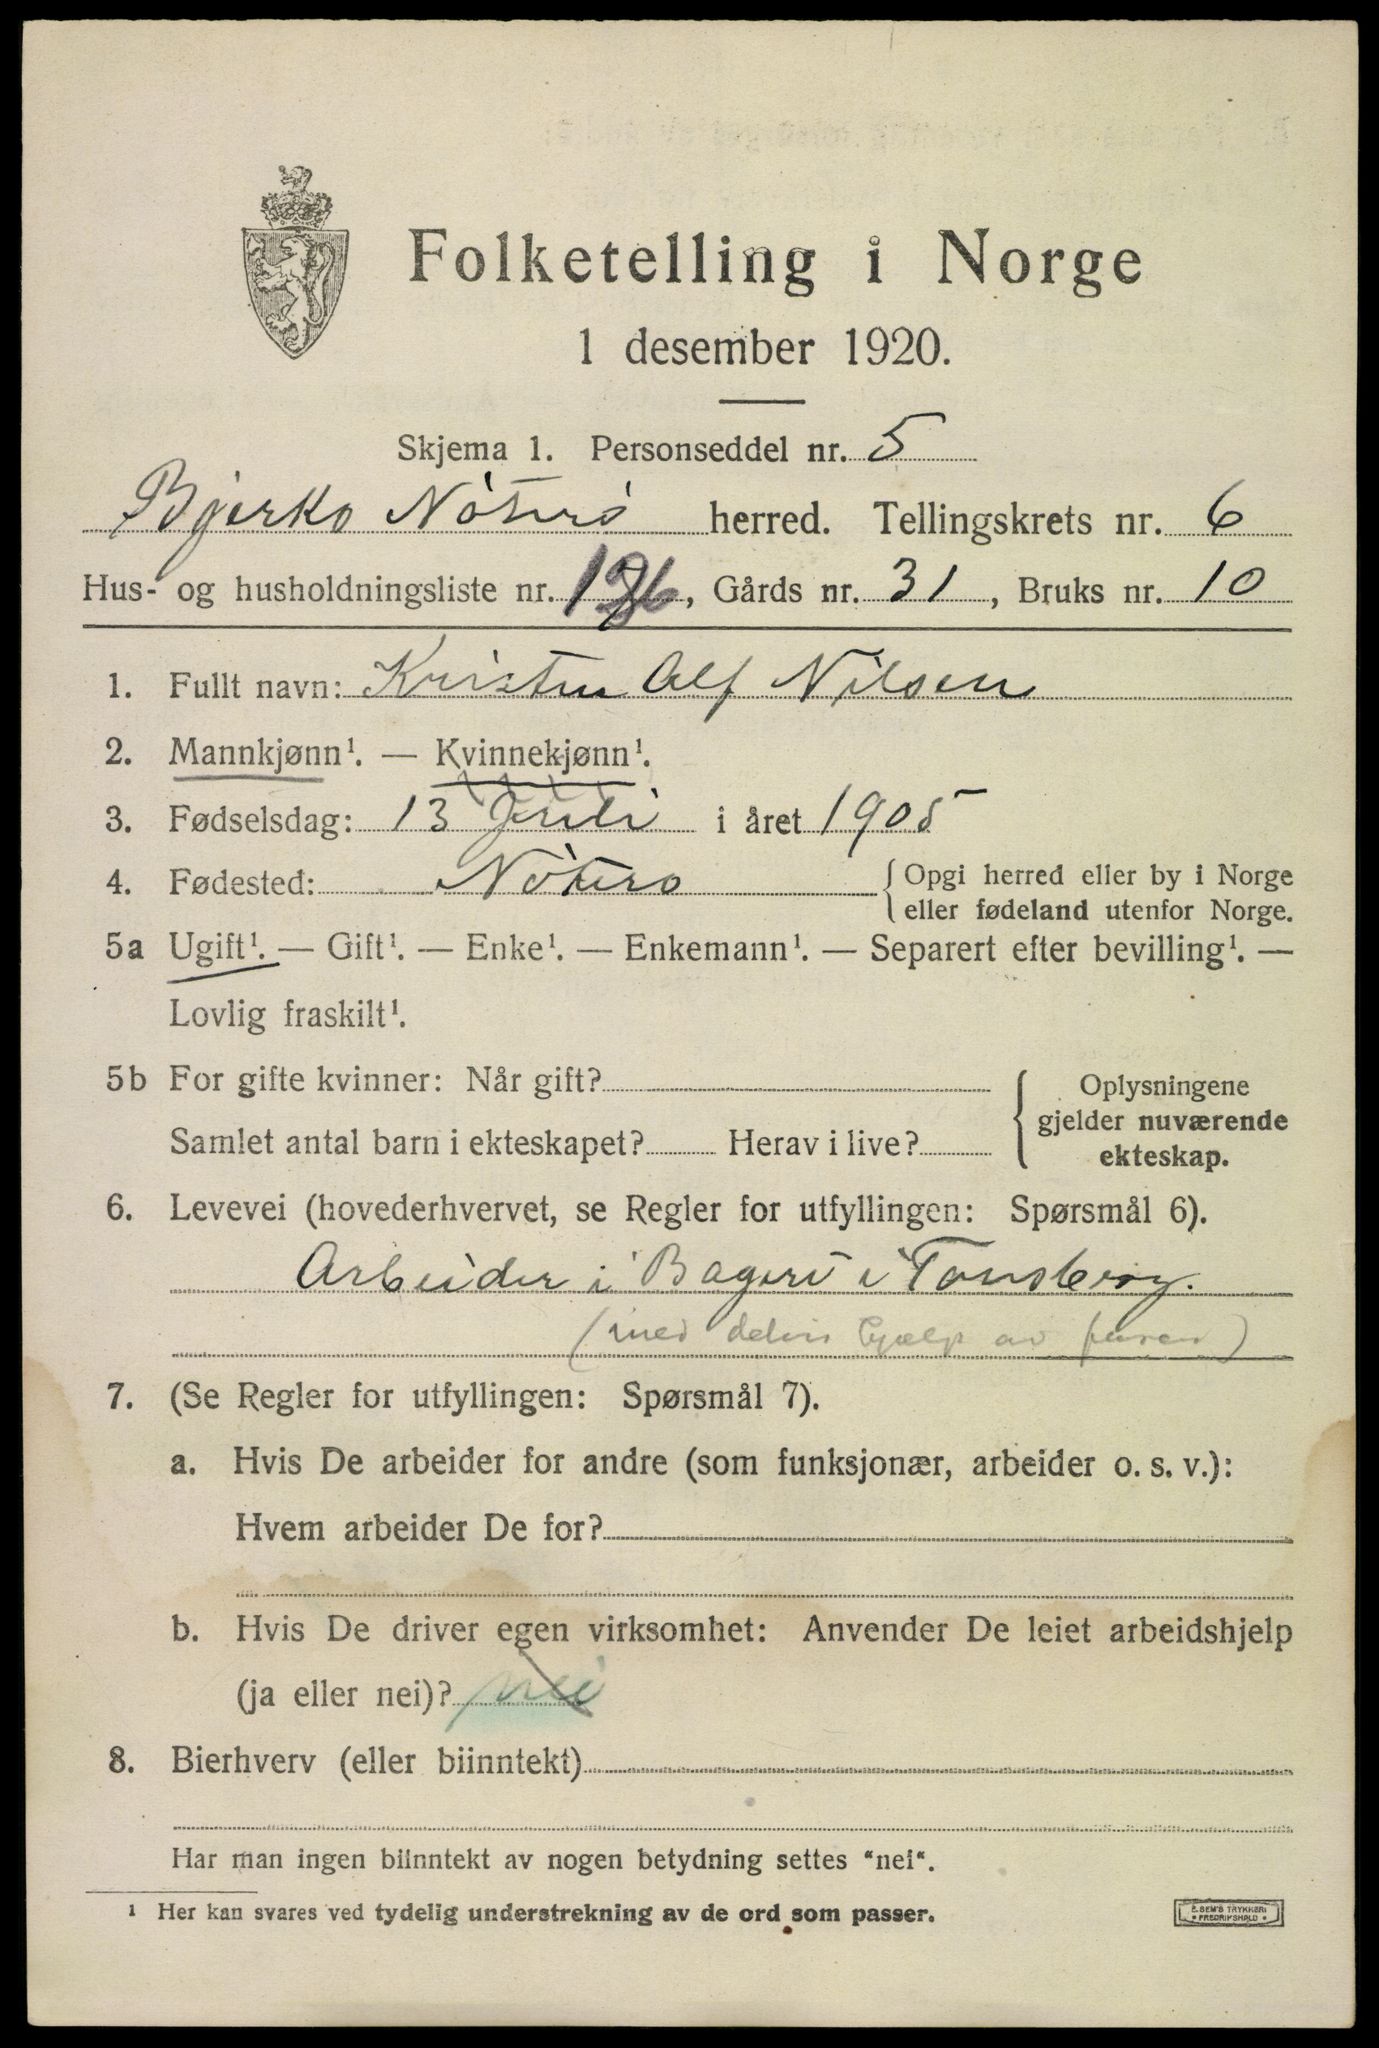 Folketelling i Norge
1 desember 1920.
Skjema 1. Personseddel nr. 5
Bjerkø Nøterø herred. Tellingskrets nr. 6
Hus- og husholdningsliste nr. 126, Gårds nr. 31, Bruks nr. 10
1. Fullt navn: Kristen Alf Nilsen
2. Mannkjønn¹. — Kvinnekjønn¹.
3. Fødselsdag: 13 Juli i året 1905
4. Fødested: Nøterø { Opgi herred eller by i Norge
eller fødeland utenfor Norge.
5a Ugift¹. — Gift¹. — Enke¹. — Enkemann¹. — Separert efter bevilling¹. —
Lovlig fraskilt¹.
5b For gifte kvinner: Når gift?
Samlet antal barn i ekteskapet? Herav i live?
{ Oplysningene
gjelder nuværende
ekteskap.
6. Levevei (hovederhvervet, se Regler for utfyllingen: Spørsmål 6).
Arbeider i Bageri i Tønsberg.
(med delvis hjælp av faren)
7. (Se Regler for utfyllingen: Spørsmål 7).
a. Hvis De arbeider for andre (som funksjonær, arbeider o. s. v.):
Hvem arbeider De for?
b. Hvis De driver egen virksomhet: Anvender De leiet arbeidshjelp
(ja eller nei)? nei
8. Bierhverv (eller biinntekt)
Har man ingen biinntekt av nogen betydning settes "nei".
¹ Her kan svares ved tydelig understrekning av de ord som passer.
E. SEM'S TRYKKERI
• FREDRIKSHALD •